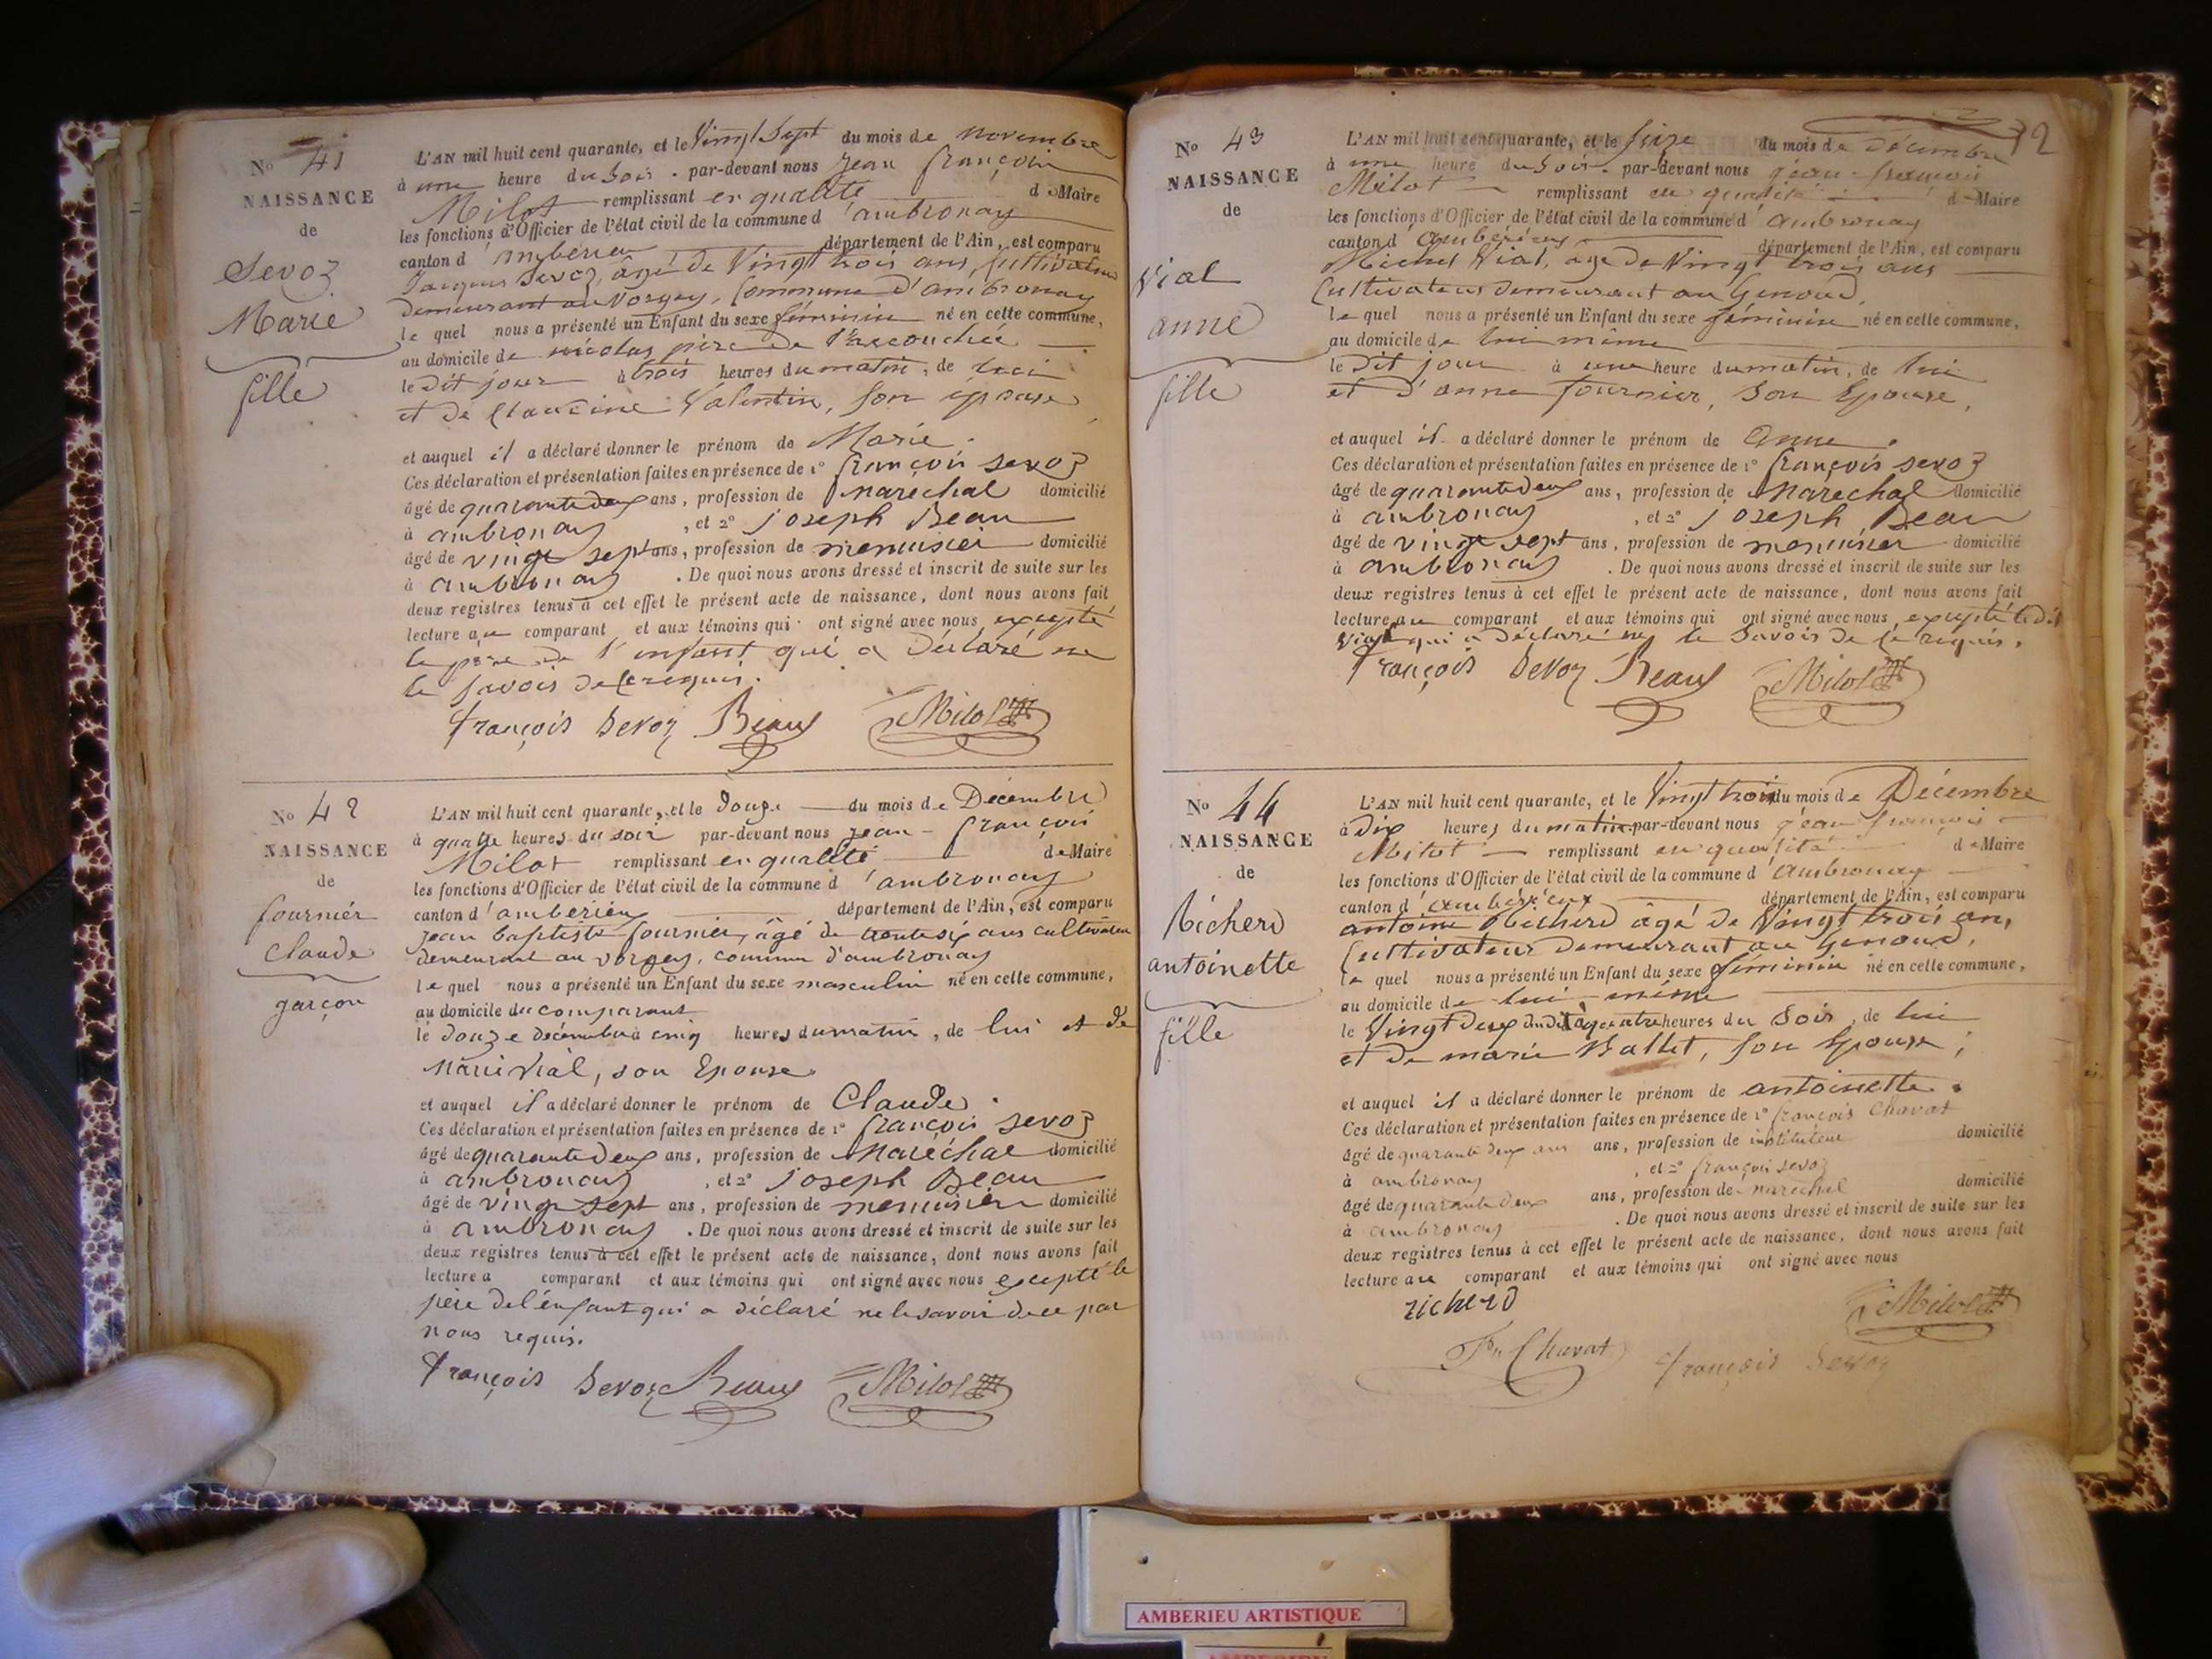 No 41
NAISSANCE
de
Sevoz
Marie
fille
L'AN mil huit cent quarante, et le Vingt Sept du mois de novembre
à une heure du Soir . par-devant nous Jean françois
Milot remplissant en qualité de Maire
les fonctions d'Officier de l'état civil de la commune d'ambronay
canton d'ambérieu département de l'Ain, est comparu
Jacques Sevoz, âgé de Vingt trois ans, Cultivateur
demeurant au Vorgey, Commune d'ambronay
le quel nous a présenté un Enfant du sexe féminin né en cette commune,
au domicile de nicolas père de l'accouchée
le Dit jour à trois heures du matin, de lui
et de Claudine Valentin, son épouse
et auquel il a déclaré donner le prénom de Marie.
Ces déclaration et présentation faites en présence de 1° françois sevoz
âgé de quarante deux ans, profession de maréchal domicilié
à ambronay , et 2° joseph Beau
âgé de vingt sept ans, profession de menuisier domicilié
à ambronay . De quoi nous avons dressé et inscrit de suite sur les
deux registres tenus à cet effet le présent acte de naissance, dont nous avons fait
lecture au comparant et aux témoins qui ont signé avec nous excepté
le père de l'enfant qui a déclaré ne
le savoir de ce requis.
françois Sevoz Beau Milot
No 42
NAISSANCE
de
fournier
Claude
garçon
L'AN mil huit cent quarante, et le Douze du mois de Décembre
à quatre heures du soir par-devant nous jean-françois
Milot remplissant en qualité de Maire
les fonctions d'Officier de l'état civil de la commune d'ambronay
canton d'ambérieu département de l'Ain, est comparu
jean baptiste fournier, âgé de trente six ans cultivateur
demeurant au vorgey, commune d'ambronay
le quel nous a présenté un Enfant du sexe masculin né en cette commune,
au domicile du comparant
le douze décembre à cinq heures du matin, de lui et de
marie vial, son Epouse
et auquel il a déclaré donner le prénom de Claude.
Ces déclaration et présentation faites en présence de 1° françois sevoz
âgé de quarante deux ans, profession de Maréchal domicilié
à ambronay , et 2° joseph Beau
âgé de vingt sept ans, profession de menuisier domicilié
à ambronay . De quoi nous avons dressé et inscrit de suite sur les
deux registres tenus à cet effet le présent acte de naissance, dont nous avons fait
lecture a comparant et aux témoins qui ont signé avec nous excepté le
père de l'enfant qui a déclaré ne le savoir de ce par
nous requis.
françois Sevoz Beau Milot
No 43
NAISSANCE
de
Vial
anne
fille
L'AN mil huit cent quarante, et le Seize du mois de décembre
à une heure du Soir . par-devant nous jean-françois
Milot remplissant en qualité de Maire
les fonctions d'Officier de l'état civil de la commune d'ambronay
canton d'ambérieu département de l'Ain, est comparu
Michel Vial, âgé de Vingt trois ans
Cultivateur demeurant au Genoud,
le quel nous a présenté un Enfant du sexe féminin né en cette commune,
au domicile de lui même
le Dit jour à une heure du matin, de lui
et d'anne fournier, Son Epouse,
et auquel il a déclaré donner le prénom de anne.
Ces déclaration et présentation faites en présence de 1° françois sevoz
âgé de quarante deux ans, profession de Maréchal domicilié
à ambronay , et 2° joseph Beau
âgé de vingt sept ans, profession de menuisier domicilié
à ambronay . De quoi nous avons dressé et inscrit de suite sur les
deux registres tenus à cet effet le présent acte de naissance, dont nous avons fait
lecture au comparant et aux témoins qui ont signé avec nous excepté le dit
Vial qui a déclaré ne le Savoir de ce requis.
françois Sevoz Beau Milot
No 44
NAISSANCE
de
Richerd
antoinette
fille
L'AN mil huit cent quarante, et le Vingt trois du mois de Décembre
à Dix heures du matin par-devant nous jean françois
Milot remplissant en qualité de Maire
les fonctions d'Officier de l'état civil de la commune d'ambronay
canton d'ambérieux département de l'Ain, est comparu
antoine Richerd âgé de Vingt trois ans,
Cultivateur demeurant au Genoud,
le quel nous a présenté un Enfant du sexe féminin né en cette commune,
au domicile de lui-même
le Vingt deux dudit à quatre heures du Soir, de lui
et de marie Ballet, son Epouse,
et auquel il a déclaré donner le prénom de antoinette.
Ces déclaration et présentation faites en présence de 1° françois Chavat
âgé de quarante deux ans ans, profession de instituteur domicilié
à ambronay , et 2° françois sevoz
âgé de quarante deux ans, profession de maréchal domicilié
à ambronay . De quoi nous avons dressé et inscrit de suite sur les
deux registres tenus à cet effet le présent acte de naissance, dont nous avons fait
lecture au comparant et aux témoins qui ont signé avec nous
richerd Milot
Fs Chavat françois Sevoz
AMBERIEU ARTISTIQUE